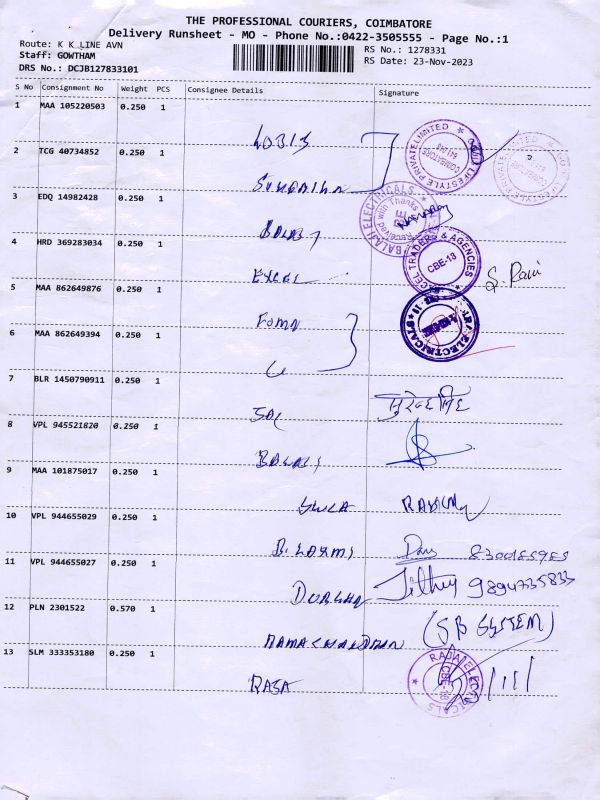 THE PROFESSIONAL COURIERS, COIMBATORE
Delivery Runsheet - MO - Phone No.:0422-3505555 - Page No.:1
Route: K K LINE AVN
RS No.: 1278331
Staff: GOWTHAM
RS Date: 23-Nov-2023
DRS No.: DCJB127833101
S No Consignment No Weight PCS Consignee Details Signature
1 MAA 105220503 0.250 1
2 TCG 40734852 0.250 1
3 EDQ 14982428 0.250 1
BALAJI ELECTRICALS
Received with Thanks
4 HRD 369283034 0.250 1 EXCEL
EXCEL TRADERS & AGENCIES
CBE-18
S. Ravi
5 MAA 862649876 0.250 1
6 MAA 862649394 0.250 1
7 BLR 1450790911 0.250 1 सुरेन्द्रसिंह
8 VPL 945521820 0.250 1 BALAJI
9 MAA 101875017 0.250 1
10 VPL 944655029 0.250 1 B. LAXMI
11 VPL 944655027 0.250 1 DURGHA 9894735833
12 PLN 2301522 0.570 1 RAMACHANDRAN (SB SYSTEM)
13 SLM 333353180 0.250 1 RAJA
RAJA ELECTRICALS
CBE-18